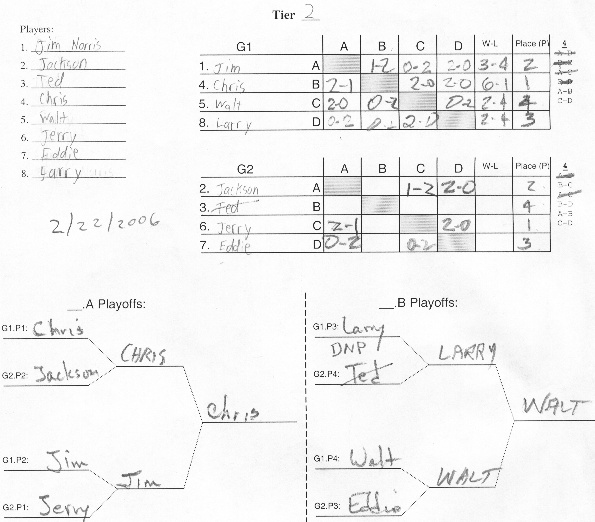 Tier 2
Players:
1. Jim Norris
2. Jackson
3. Ted
4. Chris
5. Walt
6. Jerry
7. Eddie
8. Larry
2/22/2006
G1 A B C D W-L Place (P) 4
1. Jim A 1-2 0-2 2-0 3-4 2
4. Chris B 2-1 2-0 2-0 6-1 1
5. Walt C 2-0 0-2 0-2 2-4 4
8. Larry D 0-2 0-2 2-0 2-4 3
A-B
C-D
G2 A B C D W-L Place (P) 4
2. Jackson A 1-2 2-0 2
3. Ted B 4
6. Jerry C 2-1 2-0 1
7. Eddie D 0-2 0-2 3
B-C
A-B
C-D
__.A Playoffs:
G1.P1: Chris
CHRIS
G2.P2: Jackson
Chris
G1.P2: Jim
Jim
G2.P1: Jerry
__.B Playoffs:
G1.P3: Larry
DNP
LARRY
G2.P4: Ted
WALT
G1.P4: Walt
WALT
G2.P3: Eddie